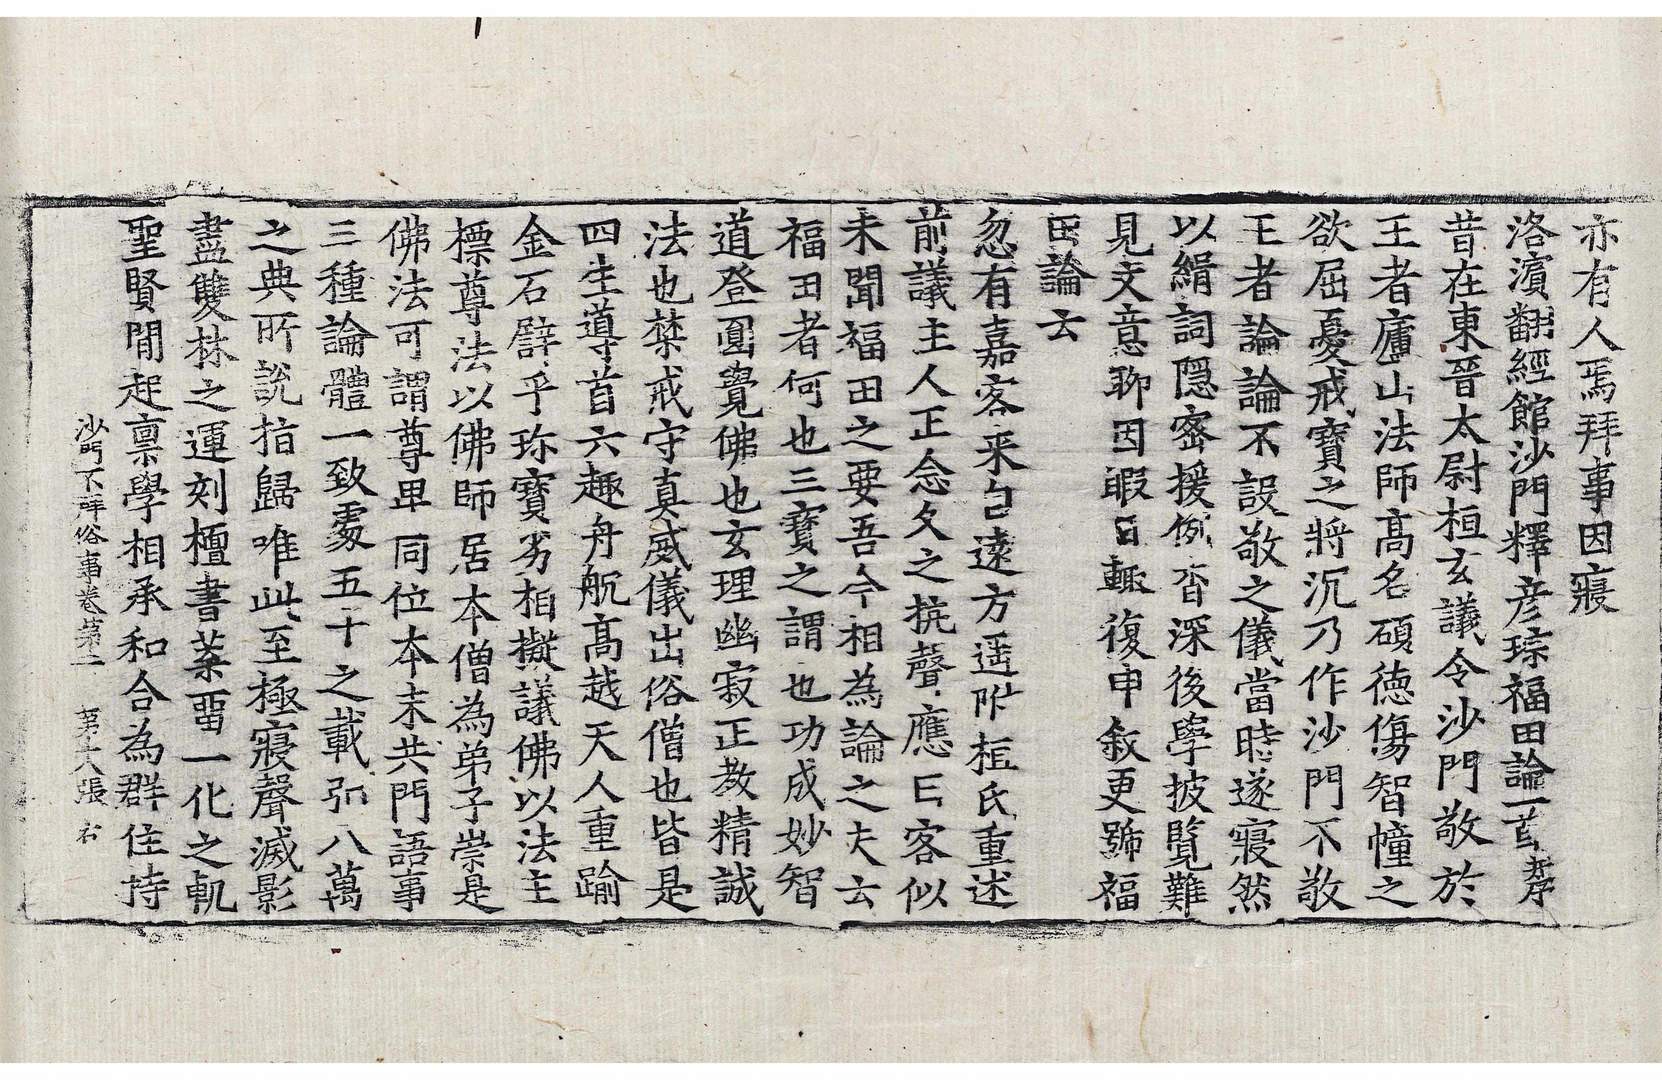 亦有人焉拜事因寢
洛濱翻經館沙門釋彦琮福田論一首并序
昔在東晉太尉桓玄議令沙門敬於
王者廬山法師髙名碩德傷智幢之
欲屈憂戒寶之將沉乃作沙門不敬
王者論論不設敬之儀當時遂寢然
以緝詞隠密援例杳深後學披覧難
見文意聊因暇日輙復申叙更號福
田論云
忽有嘉客来自遠方遥附桓氏重述
前議主人正念久之抗聲應曰客似
未聞福田之要吾今相為論之夫云
福田者何也三寶之謂也功成妙智
道登圓覺佛也玄理幽寂正教精誠
法也禁戒守真威儀出俗僧也皆是
四生導首六趣舟航髙越天人重踰
金石譬乎珎寶劣相擬議佛以法主
標尊法以佛師居本僧為弟子崇是
佛法可謂尊卑同位本末共門語事
三種論體一致䖏五十之載弘八萬
之典所說指歸唯此至極寢聲滅影
盡雙林之運刻檀書葉留一化之軌
聖賢間起禀學相承和合為群住持
沙門不拜俗事卷第二 第六張